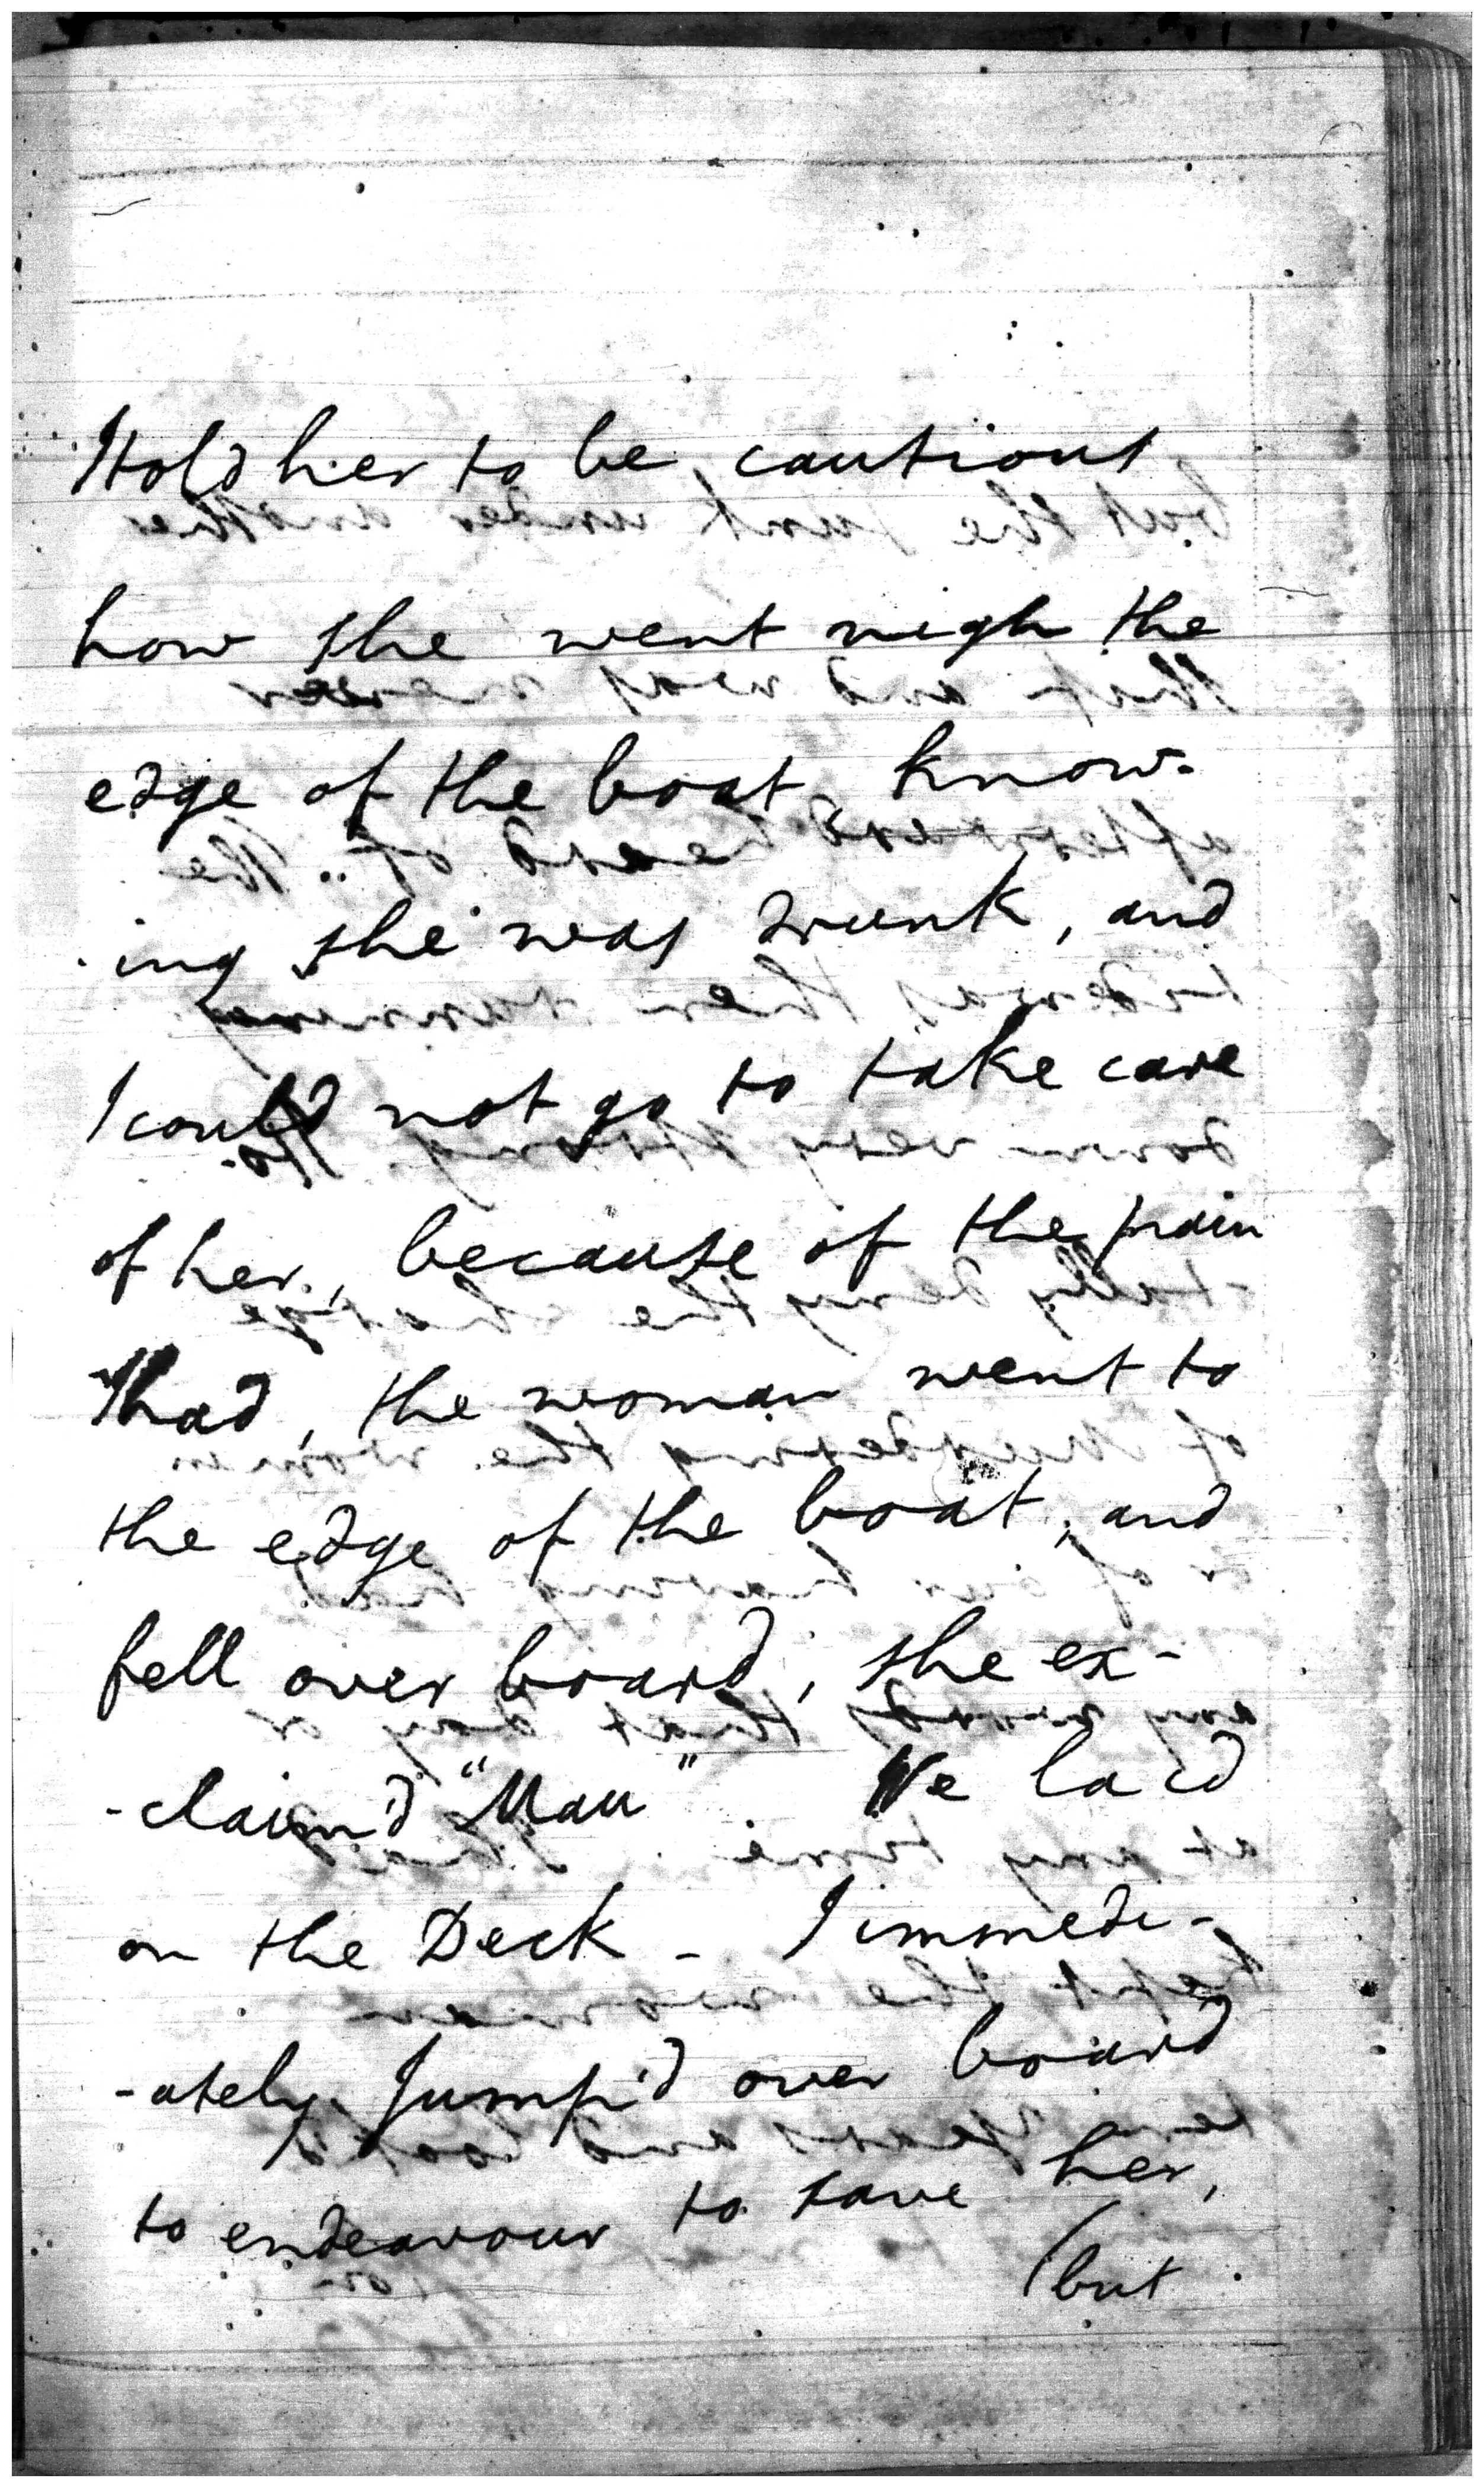 I told her to be cautious
how she went nigh the
edge of the boat, know-
-ing she was drunk, and
I could not go to take care
of her, because of the pain
I had, the woman went to
the edge of the boat, and
fell over board, she ex-
-claim'd "Man". We laid
on the Deck - I immedi-
-ately Jump'd over board
to endeavour to save her,
(but